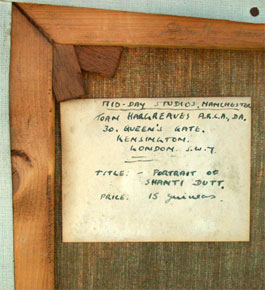 MID-DAY STUDIOS, MANCHESTER
JOAN HARGREAVES A.R.C.A, DA.
30. QUEEN'S GATE.
KENSINGTON.
LONDON. S.W.7
TITLE: - PORTRAIT OF
SHANTI DUTT.
PRICE: 15 guineas.